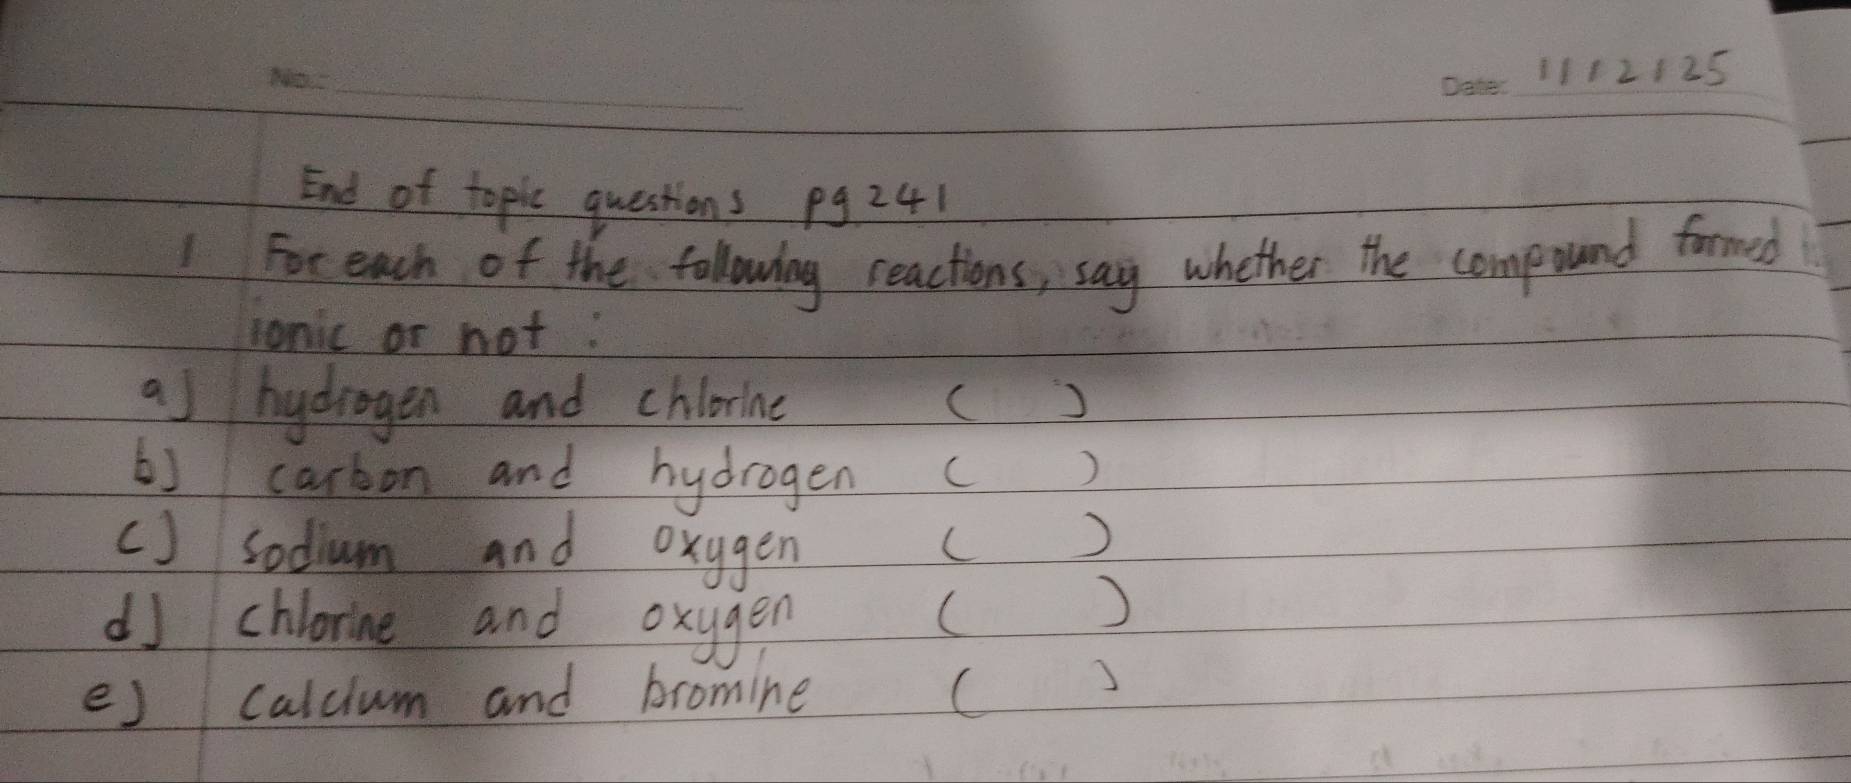 No.: Date: 1 1 / 2 / 25
End of topic questions pg 241
1 For each of the following reactions, say whether the compound formed
ionic or not :
a) hydrogen and chlorine ( )
b) carbon and hydrogen ( )
c) sodium and oxygen ( )
d) chlorine and oxygen ( )
e) calcium and bromine ( )